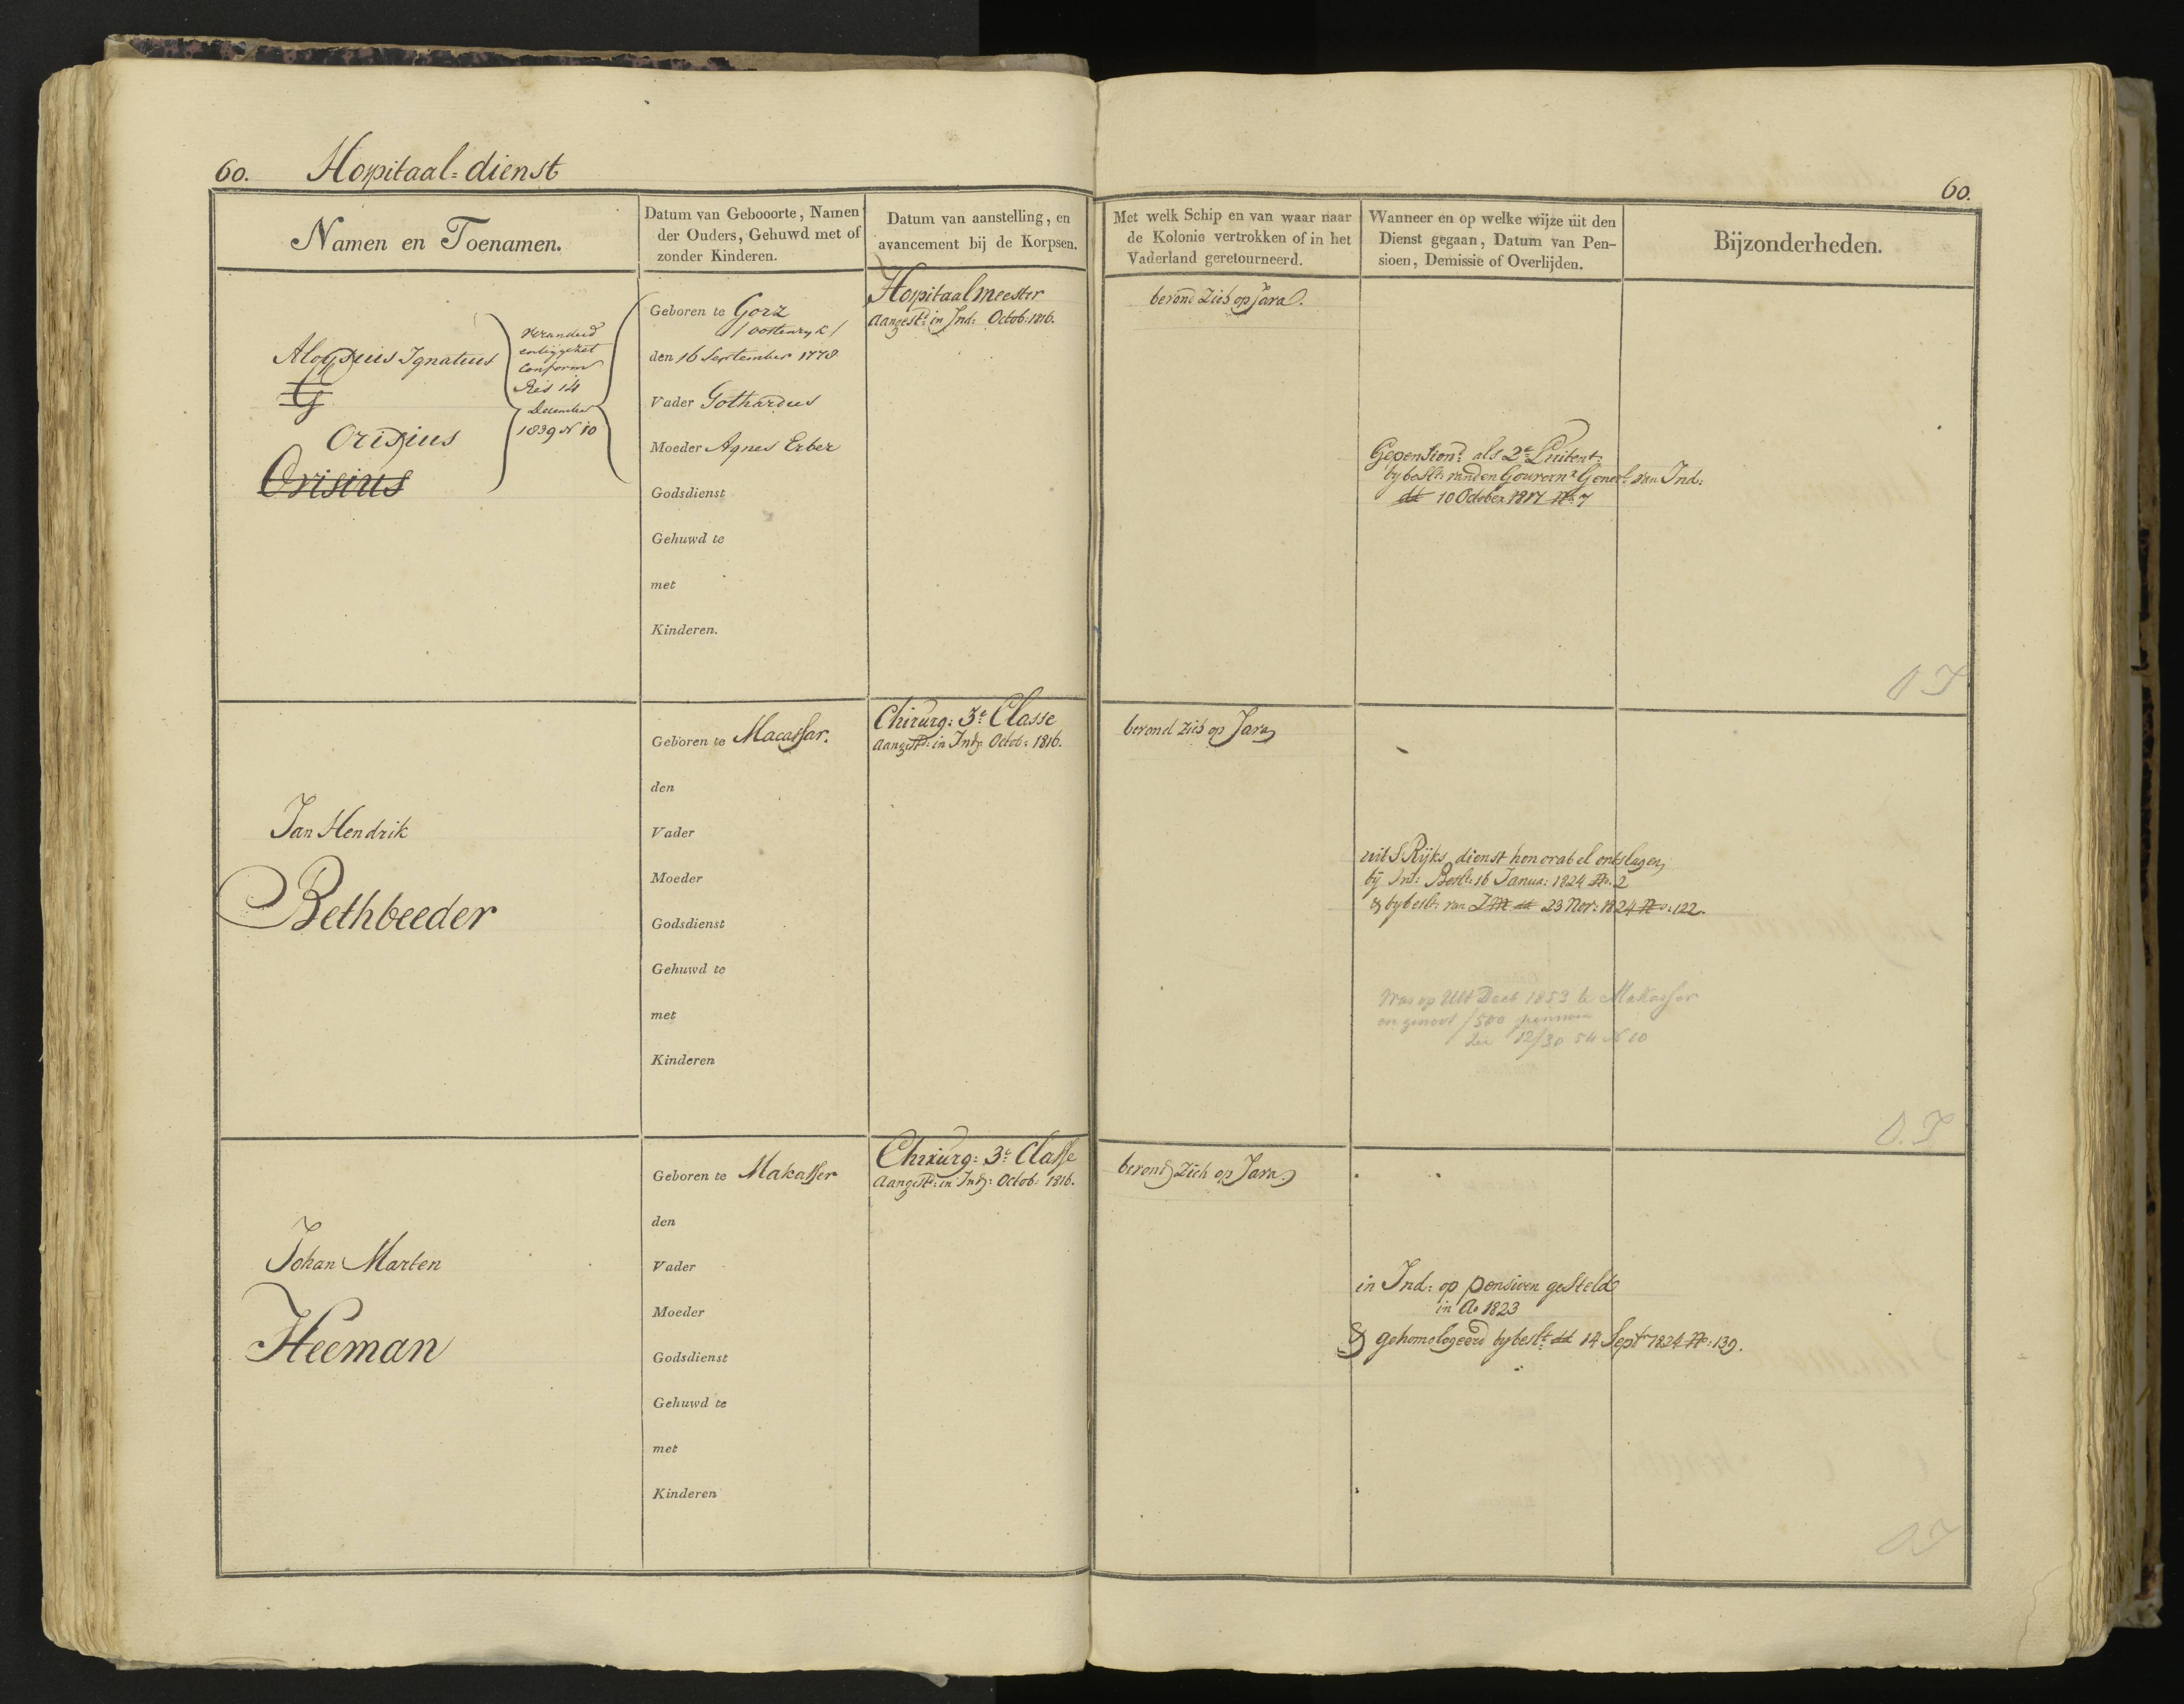 60. Hospitaal=dienst
60.
Namen en Toenamen.
Datum van Gebooorte, Namen
der Ouders, Gehuwd met of
zonder Kinderen.
Datum van aanstelling, en
avancement bij de Korpsen.
Met welk Schip en van waar naar
de Kolonie vertrokken of in het
Vaderland geretourneerd.
Wanneer en op welke wijze uit den
Dienst gegaan, Datum van Pen-
sioen, Demissie of Overlijden.
Bijzonderheden.
Aloysius Ignatius
G
Orisius
Orisius
veranderd
conform
Res 14
December
1839 N 10
Geboren te Gorz
/oostenryk/
den 16 September 1778
Vader Gothardus
Moeder Agnes Erber
Godsdienst
Gehuwd te
met
Kinderen.
Hospitaalmeester
Aangestd: in Ind: Octob: 1816.
bevond Zich op Java.
Gepensiond: als 2e Luitent:
by beslt: van den Gouvernr Generl: van Ind:
dd 10 October 1817 No. 7
O I
Jan Hendrik
Bethbeeder
Geboren te Macassar.
den
Vader
Moeder
Godsdienst
Gehuwd te
met
Kinderen
Chirurg: 3e Classe
Aangestd: in Ind: Octob: 1816.
bevond zich op Java
uit S Rijks dienst honorabel ontslagen
bij Ind: Beslt: 16 Janua: 1824 No. 2
& by beslt: van ZM dd 23 Nov: 1824 No: 122.
Was op Ult Decb 1853 te Makasser
en genoot f 500 pensioen
Zie 12/30 54 N 10
O. I
Johan Marten
Heeman
Geboren te Makasser
den
Vader
Moeder
Godsdienst
Gehuwd te
met
Kinderen
Chirurg: 3e Classe
Aangestd: in Ind: Octob: 1816.
bevond Zich op Java
in Ind: op pensioen gesteld
in Ao 1823
& gehomologeerd by beslt: dd 14 Septr 1824 No: 139.
O I